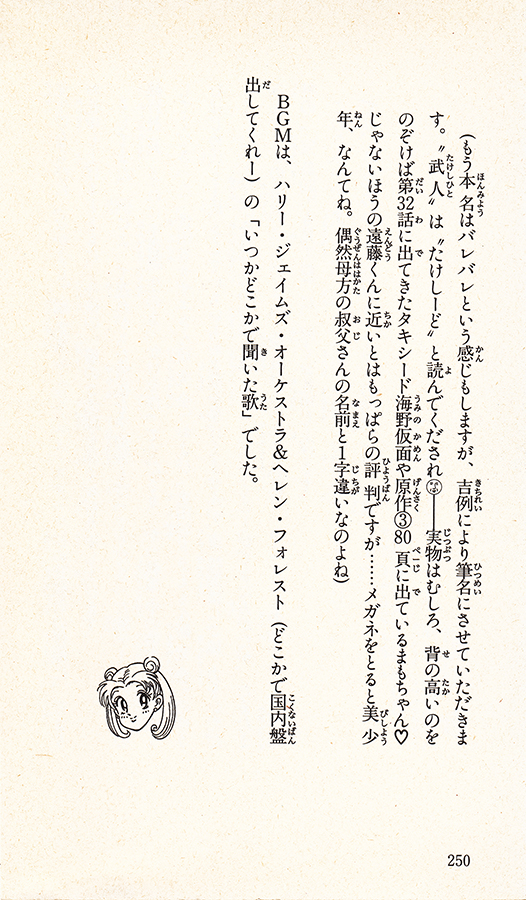 （もう本名はバレバレという感じもしますが、吉例により筆名にさせていただきま
す。〝武人〟は〝たけしーど〟と読んでくだされ――実物はむしろ、背の高いのを
のぞけば第32話に出てきたタキシード海野仮面や原作③80頁に出ているまもちゃん♡
じゃないほうの遠藤くんに近いとはもっぱらの評判ですが……メガネをとると美少
年、なんてね。偶然母方の叔父さんの名前と1字違いなのよね）
BGMは、ハリー・ジェイムズ・オーケストラ&ヘレン・フォレスト（どこかで国内盤
出してくれー）の「いつかどこかで聞いた歌」でした。
250